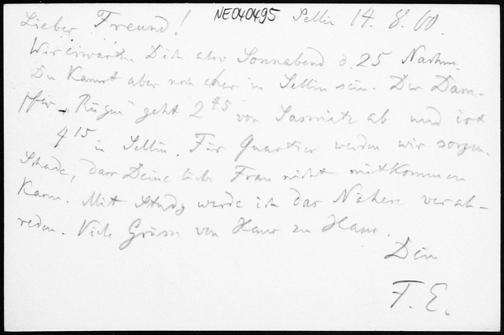 NE040495
Sellin 14.8.00.
Lieber Freund!
Wir erwarten Dich also Sonnabend 3.25 Nachm.
Du kannst aber noch eher in Sellin sein. Der Dam-
pfer „Rügen" geht 2 45 von Sassnitz ab und ist
4 15 in Sellin. Für Quartier werden wir sorgen.
Schade, dass Deine liebe Frau nicht mitkommen
kann. Mit Study werde ich das Nähere verab-
reden. Viele Grüsse von Haus zu Haus.
Dein
F. E.